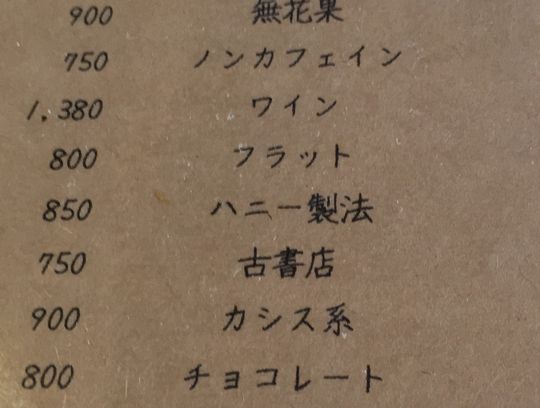 900 無花果
750 ノンカフェイン
1,380 ワイン
800 フラット
850 ハニー製法
750 古書店
900 カシス系
800 チョコレート